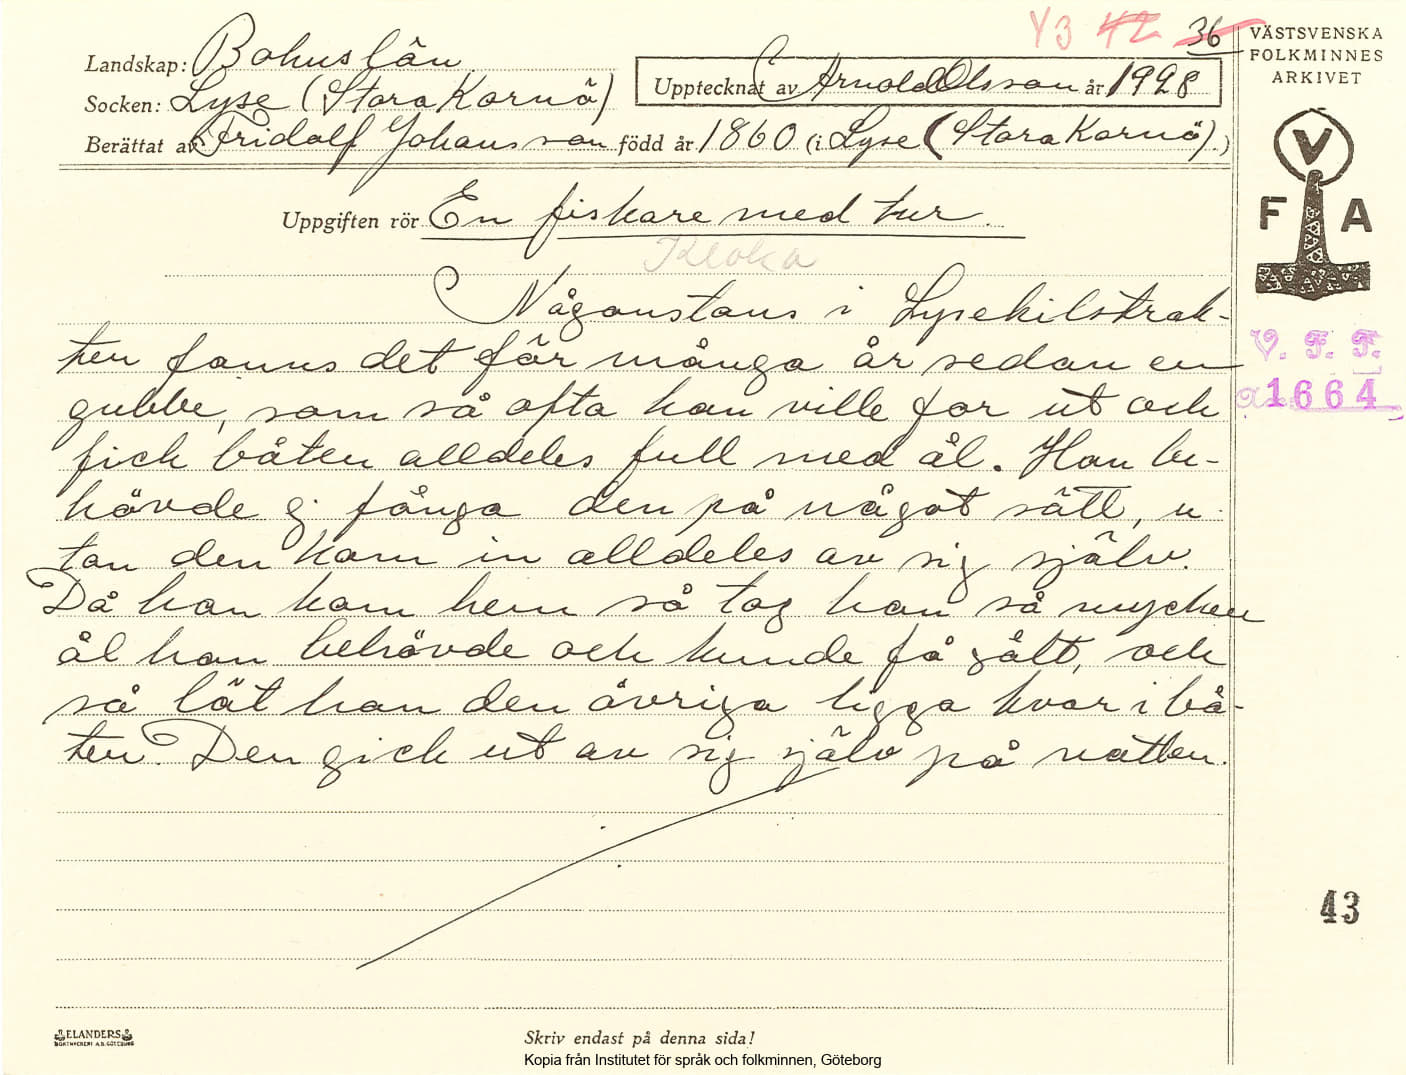 43 42 36
VÄSTSVENSKA
FOLKMINNES
ARKIVET
Landskap: Bohuslän
Upptecknat av Arnold Olsson år 1928
Socken: Lyse (Stora Kornö)
Berättat av Fridolf Johansson född år 1860 (i Lyse (Stora Kornö).)
V
F A
Uppgiften rör En fiskare med tur.
Kloka
Någonstans i Lysekilstrak-
ten fanns det för många år sedan en
gubbe, som så ofta han ville for ut och
fick båten alldeles full med ål. Han be-
hövde ej fånga den på något sätt, u-
tan den kom in alldeles av sig själv.
Då han kom hem så tog han så mycken
ål han behövde och kunde få sålt, och
så lät han den övriga ligga kvar i bå-
ten. Den gick ut av sig själv på natten.
V. F. F.
a 1664
43
ELANDERS
BOKTRYCKERI A.B. GÖTEBORG
Skriv endast på denna sida!
Kopia från Institutet för språk och folkminnen, Göteborg